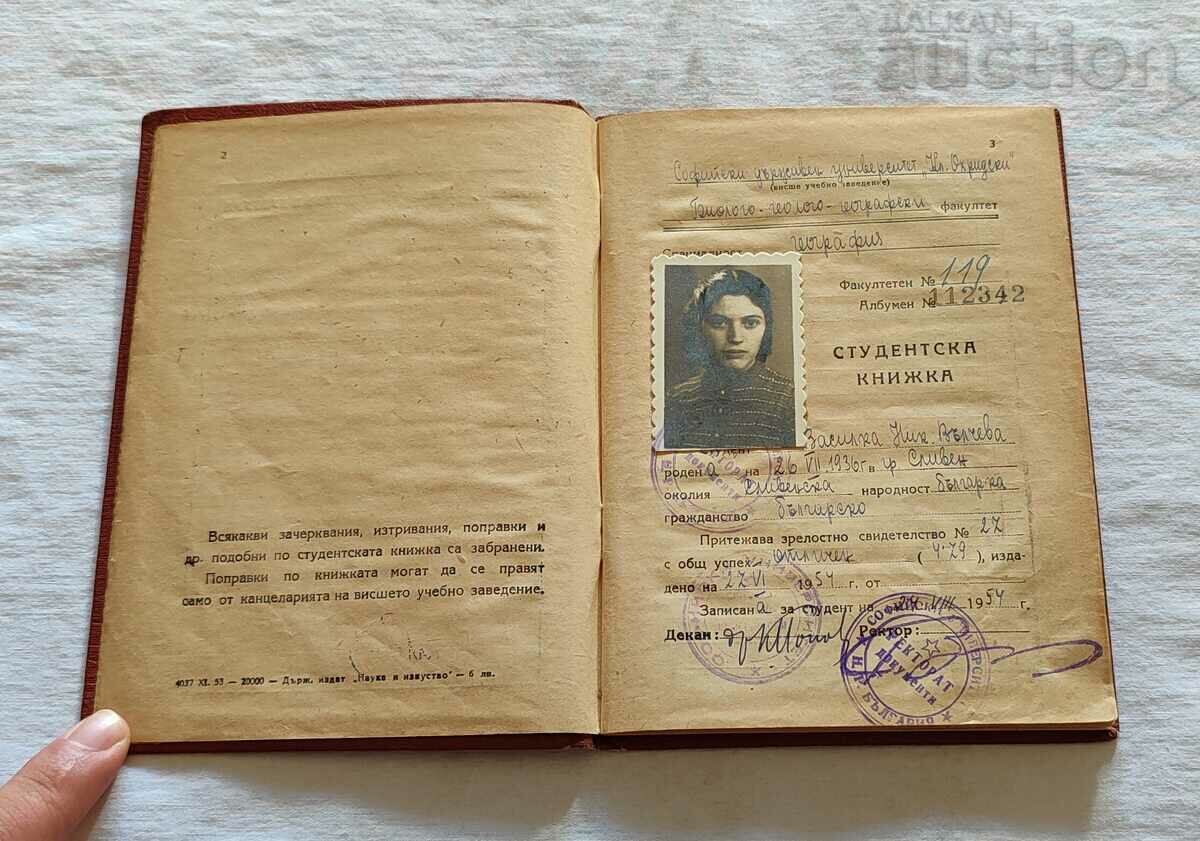 BALKAN
auction
2
Всякакви зачерквания, изтривания, поправки и
др. подобни по студентската книжка са забранени.
Поправки по книжката могат да се правят
само от канцеларията на висшето учебно заведение.
4037 XI. 53 — 20000 — Държ. издат „Наука и изкуство" — 6 лв.
3
Софийски държавен университет „Кл. Охридски"
(висше учебно заведение)
Биолого-геолого-географски факултет
Специалност география
Факултетен № 119
Албумен № 112342
СТУДЕНТСКА
КНИЖКА
Василка Ник. Вълчева
родена на 26 VII 1936 г в гр. Сливен
околия Сливенска народност българка
гражданство българско
Притежава зрелостно свидетелство № 27
с общ успех отличен (4.79), изда-
дено на 27 VI 1954 г. от
Записана за студент на 24 VIII 1954 г.
Декан: Ректор:
СОФИЙ
РЕКТОРАТ
документи
Н. Р. БЪЛГАРИЯ